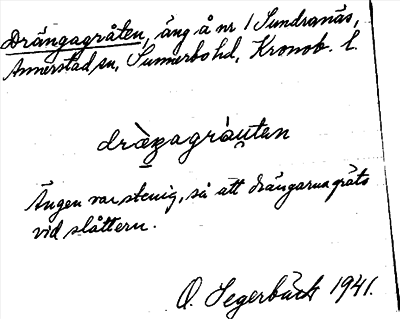 Drängagråten, äng å nr 1 Sundranäs,
Annerstad sn, Sunnerbo hd, Kronob. l.
dràŋagràu̯tən
Ängen var stenig, så att drängarna gräts
vid slåttern.
O. Segerbäck 1941.